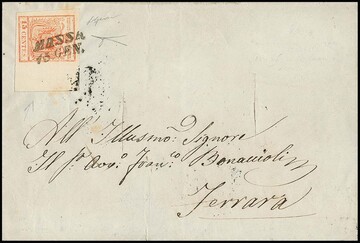 15 CENTES
MESSA
15 GEN.
All' Illusmo: Signore
Il Sr. Avvo. Franco. Bonaccioli
Ferrara